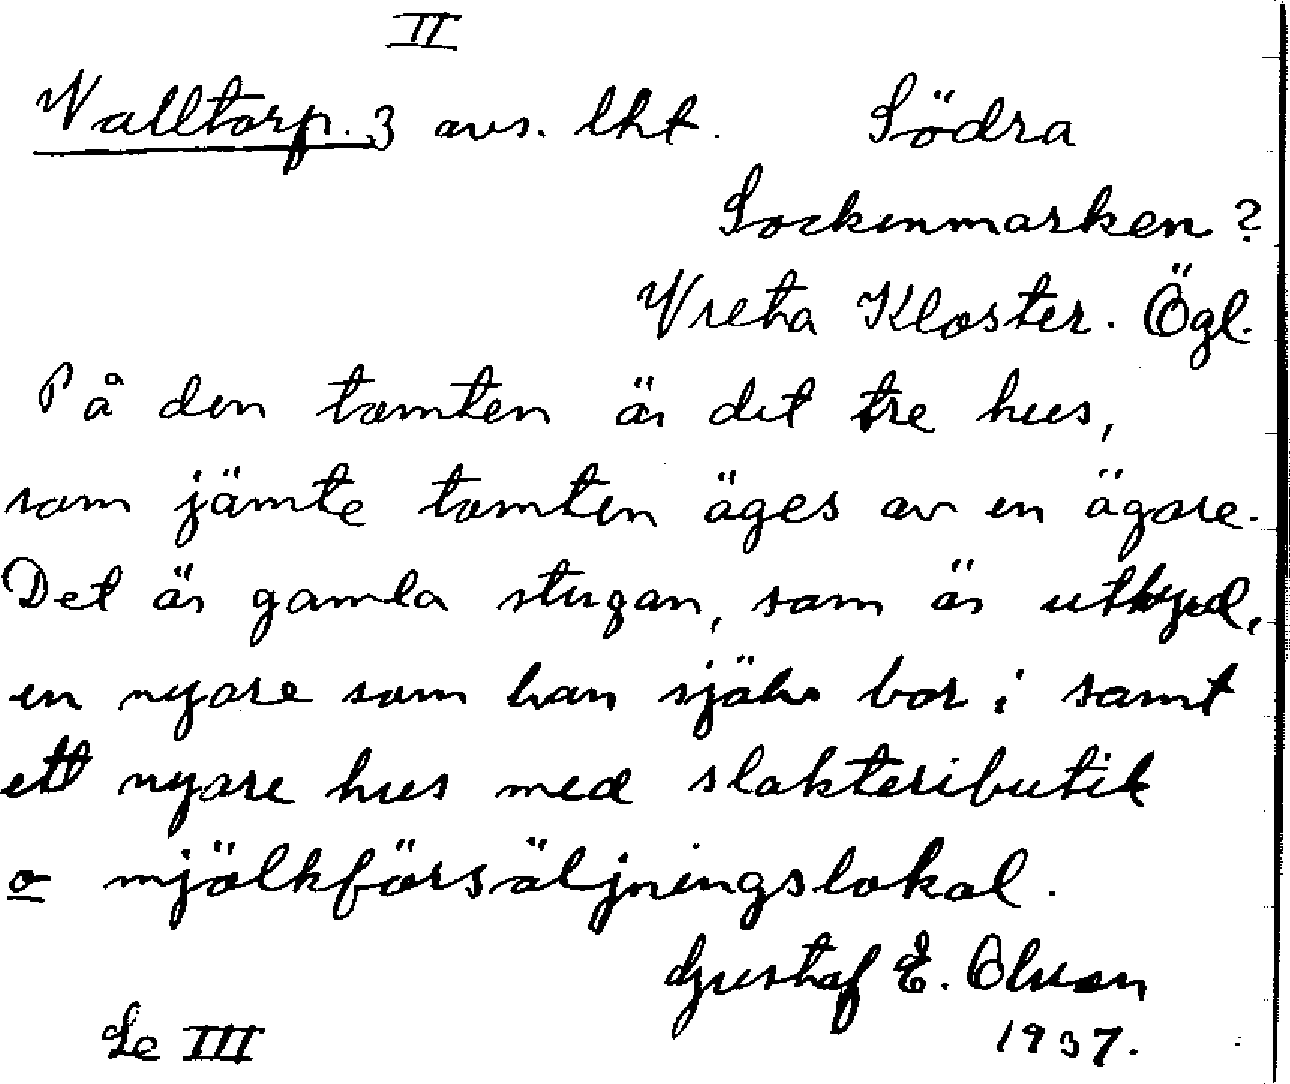 II
Walltorp. 3 avs. lht. Södra
Sockenmarken?
Vreta Kloster. Ögl.
På den tomten är det tre hus,
som jämte tomten äges av en ägare.
Det är gamla stugan, som är uthyrd,
en nyare som han själv bor i samt
ett nyare hus med slakteributik
o mjölkförsäljningslokal.
Gustaf E. Olsson
1937.
Se III